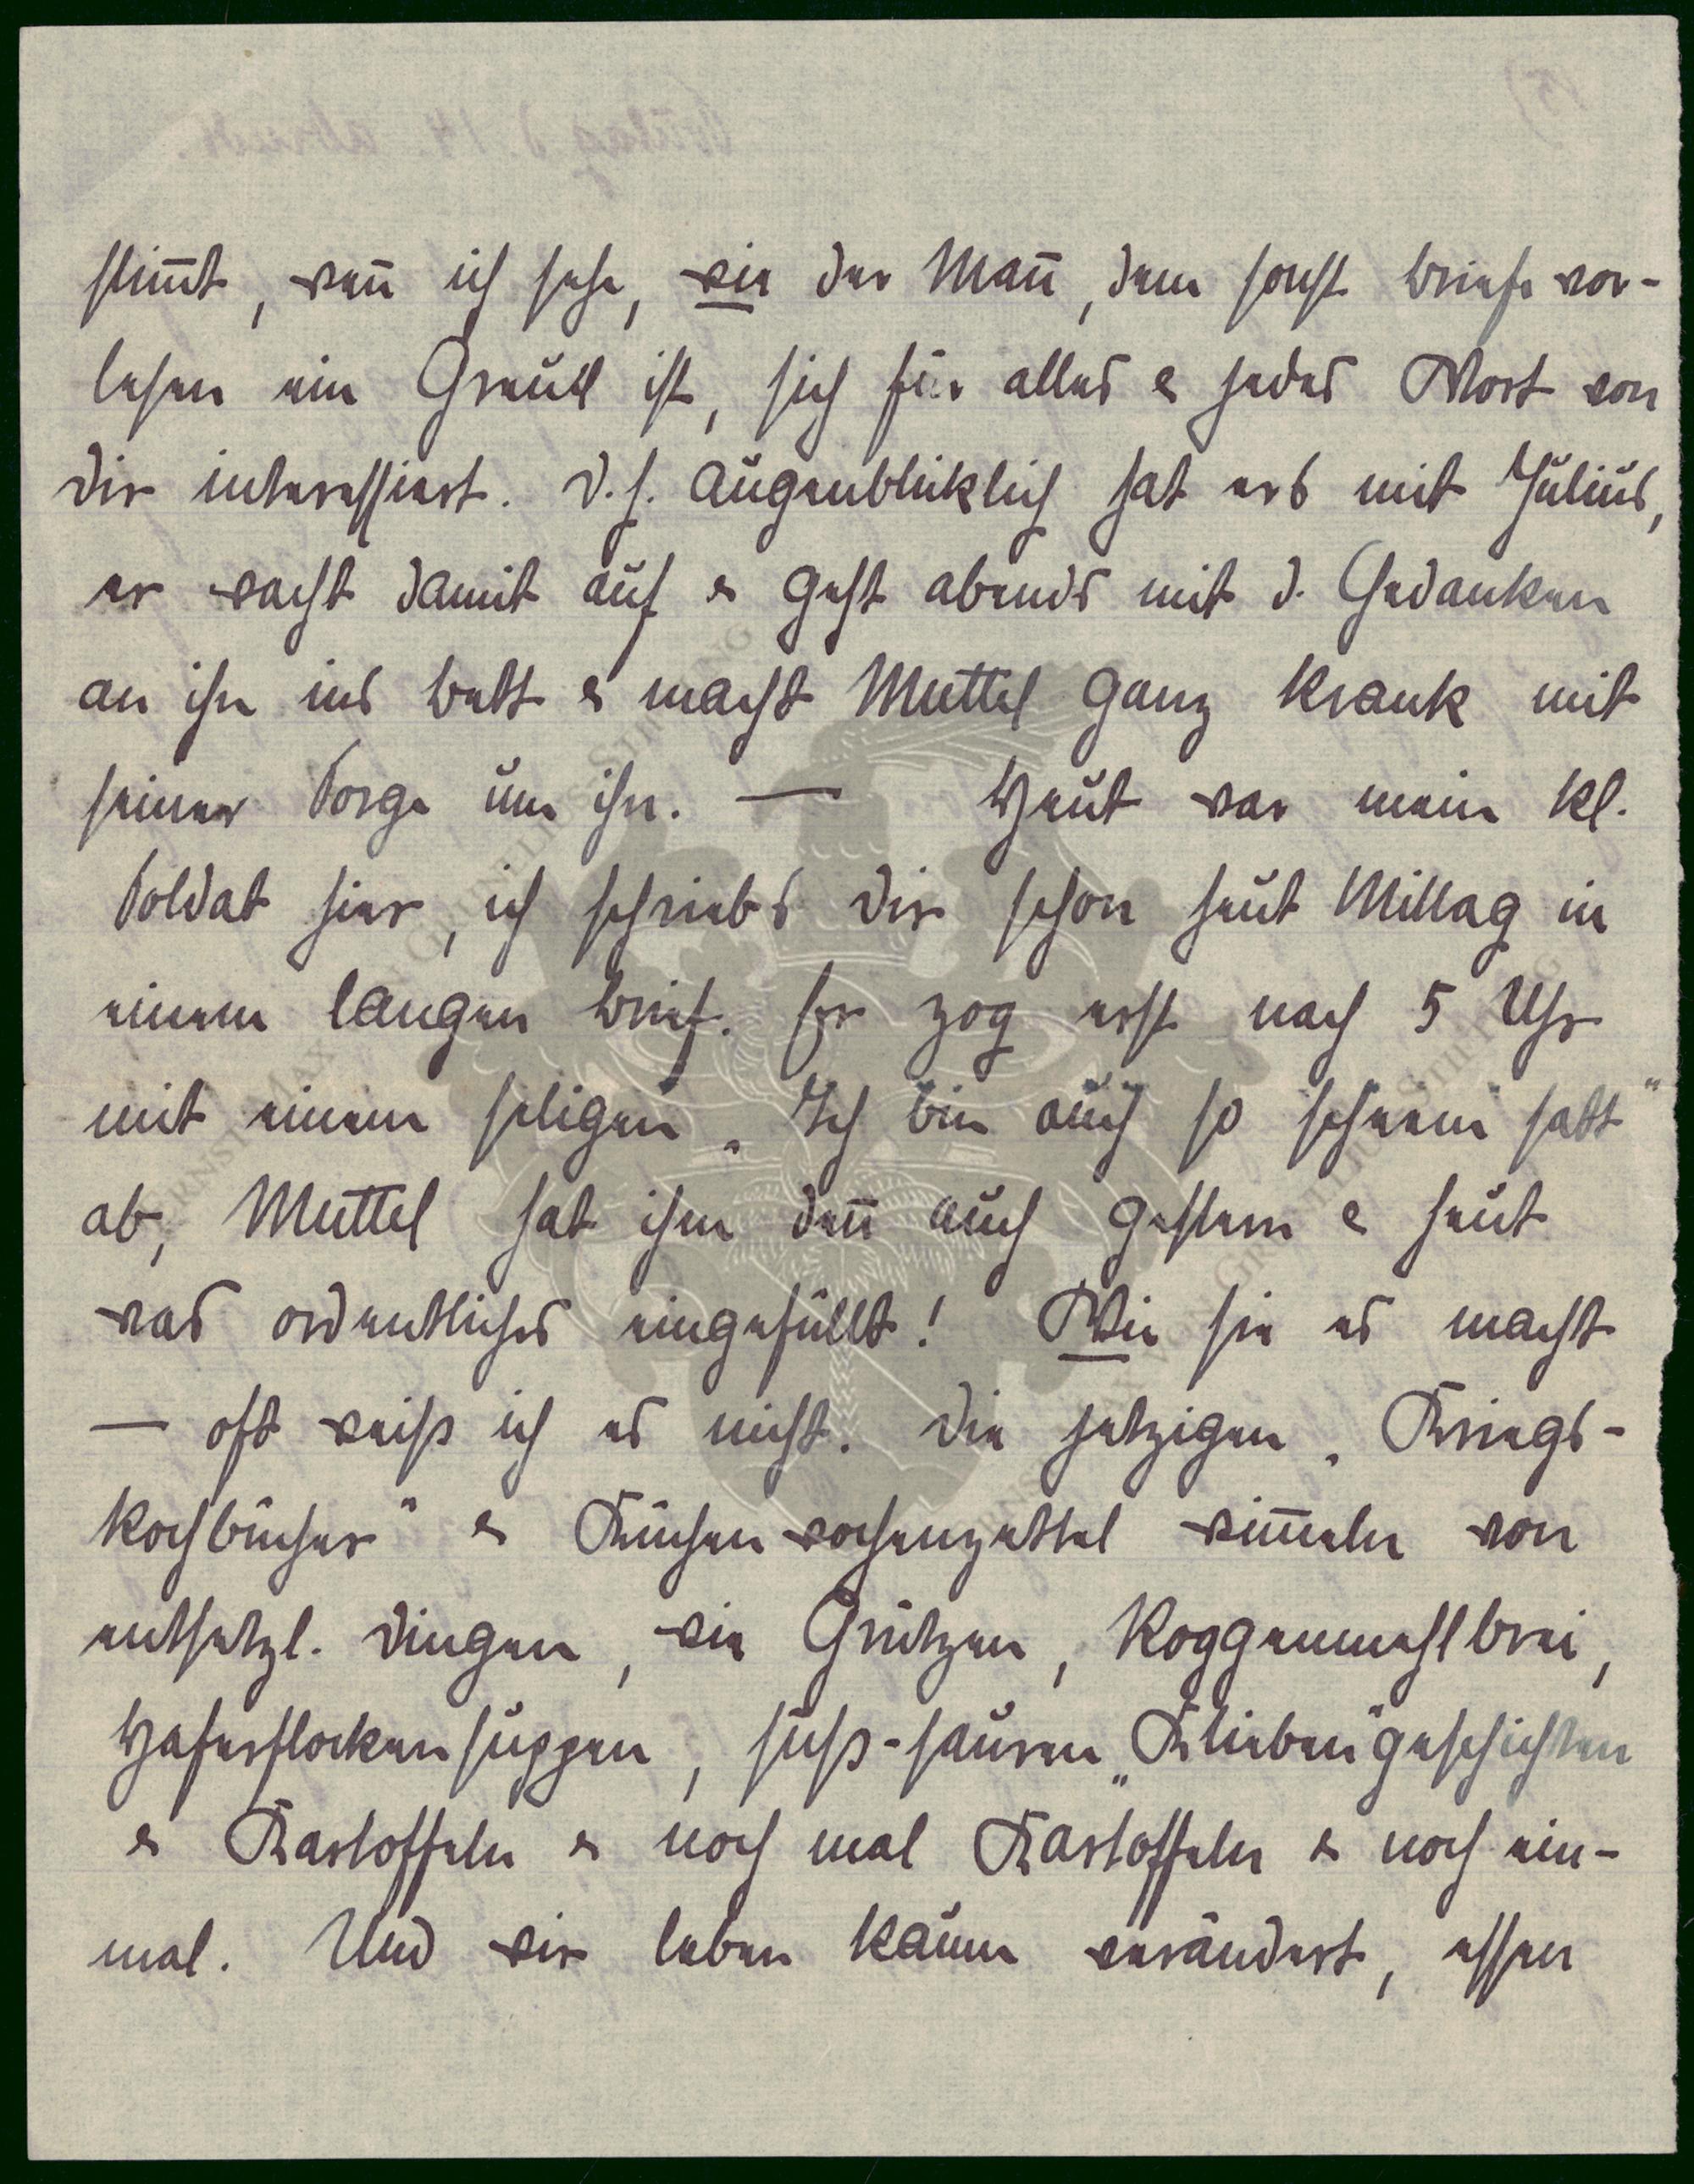 stim̅t, wen̅ ich sehe, wie der Man̅, dem sonst Briefe vor-
lesen ein Greuel ist, sich für alles & jedes Wort von
Dir interessiert. D.h. augenblicklich hat ers mit Julius,
er wacht damit auf & geht abends mit d. Gedanken
an ihn ins Bett & macht Muttel ganz krank mit
seiner Sorge um ihn. — Heut war mein kl.
Soldat hier, ich schriebs Dir schon heut Mittag in
einem langen Brief. Er zog erst nach 5 Uhr
mit einem seligen „Ich bin auch so scheeni satt“
ab, Muttel hat ihm den̅ auch gestern & heut
was ordentliches eingefüllt! Wie sie es macht
— oft weiss ich es nicht. Die jetzigen „Kriegs-
kochbücher“ & Küchenwochenzettel wim̅eln von
entsetzl. Dingen, wie Grützen, Roggenmehlbrei,
Haferflockensuppen, süss-sauren „Klieben“geschichten
& Kartoffeln & noch mal Kartoffeln & noch ein-
mal. Und wir leben kaum verändert, essen